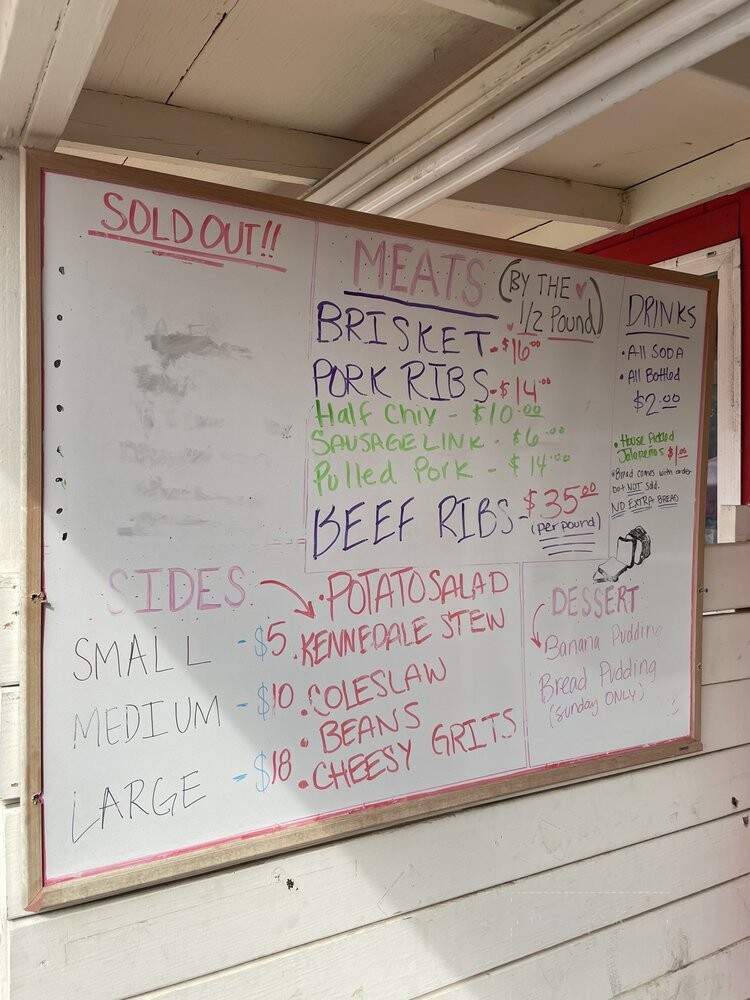 SOLD OUT!!
MEATS (BY THE
1/2 Pound)
BRISKET - $16.00
PORK RIBS - $14.00
Half Chix - $10.00
SAUSAGE LINK - $6.00
Pulled Pork - $14.00
BEEF RIBS - $35.00
(per pound)
DRINKS
• All SODA
• All Bottled
$2.00
• House Pickled
Jalapeños $1.00
*Bread comes with order
but NOT Sold.
NO EXTRA BREAD
SIDES
SMALL - $5
MEDIUM - $10
LARGE - $18
• POTATO SALAD
• KENNEDALE STEW
• COLESLAW
• BEANS
• CHEESY GRITS
DESSERT
Banana Pudding
Bread Pudding
(Sunday ONLY)